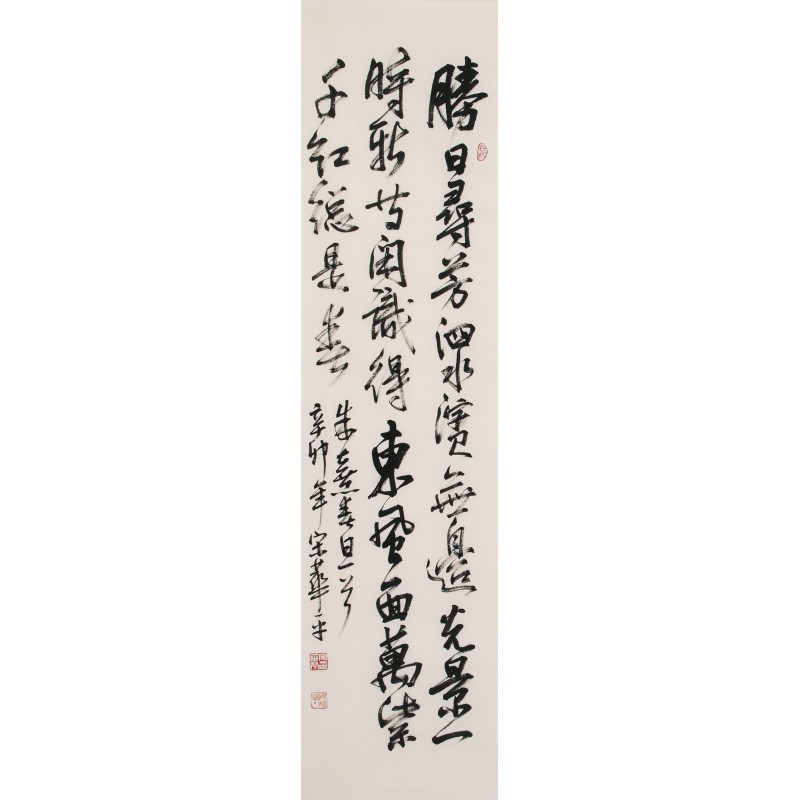 勝日尋芳泗水濱無邊光景一
時新等閑識得東風面萬紫
千紅總是春
朱熹春日一首
辛卯年宋華平